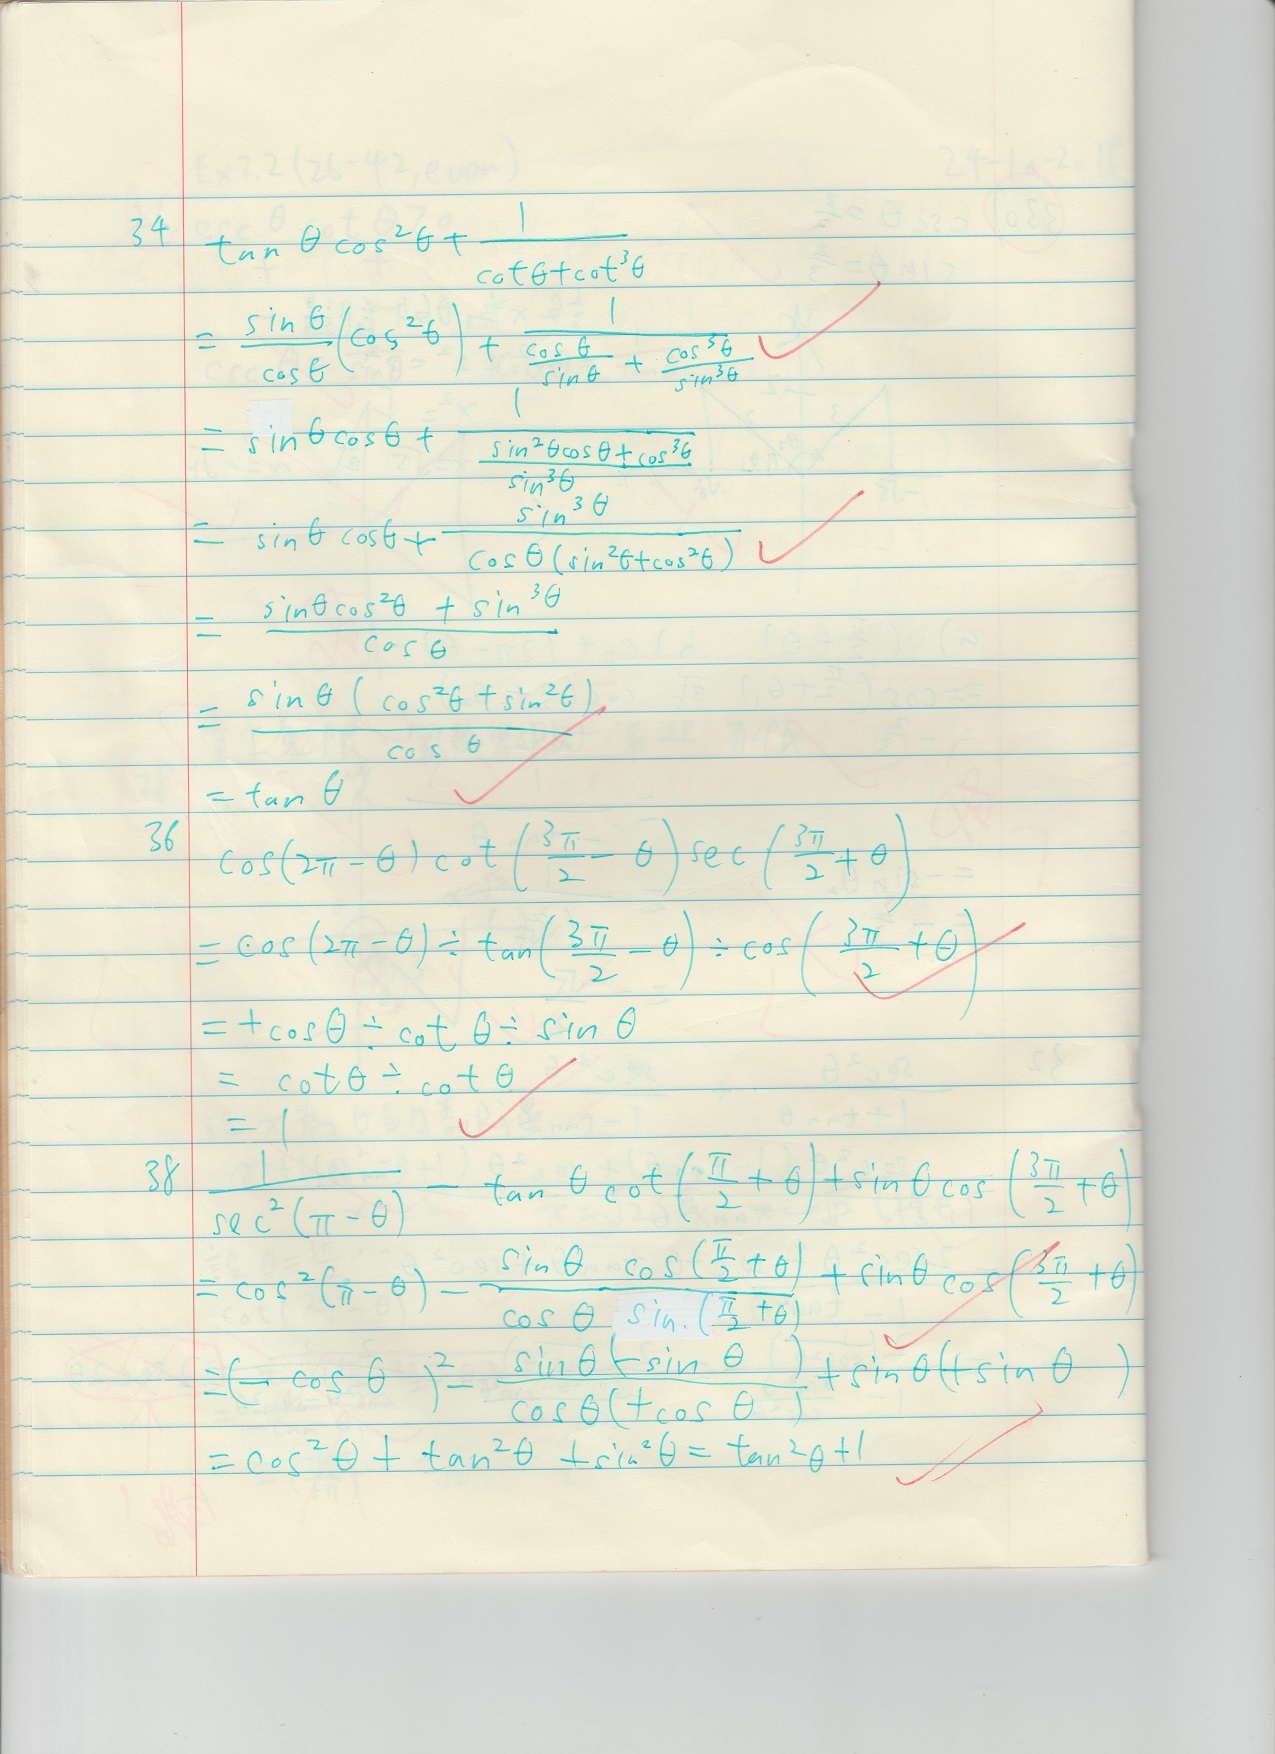 34 tan θ cos²θ + 1/(cot θ + cot³θ)
= sin θ/cos θ (cos²θ) + 1/(cos θ/sin θ + cos³θ/sin³θ)
= sin θ cos θ + 1/((sin²θ cos θ + cos³θ)/sin³θ)
= sin θ cos θ + sin³θ/(cos θ (sin²θ + cos²θ))
= (sin θ cos²θ + sin³θ)/cos θ
= sin θ (cos²θ + sin²θ)/cos θ
= tan θ
36 cos(2π − θ) cot(3π/2 − θ) sec(3π/2 + θ)
= cos(2π − θ) ÷ tan(3π/2 − θ) ÷ cos(3π/2 + θ)
= +cos θ ÷ cot θ ÷ sin θ
= cot θ ÷ cot θ
= 1
38 1/sec²(π − θ) − tan θ cot(π/2 + θ) + sin θ cos(3π/2 + θ)
= cos²(π − θ) − (sin θ cos(π/2 + θ))/(cos θ sin(π/2 + θ)) + sin θ cos(3π/2 + θ)
= (− cos θ)² − (sin θ (−sin θ))/(cos θ (+cos θ)) + sin θ (+sin θ)
= cos²θ + tan²θ + sin²θ = tan²θ + 1